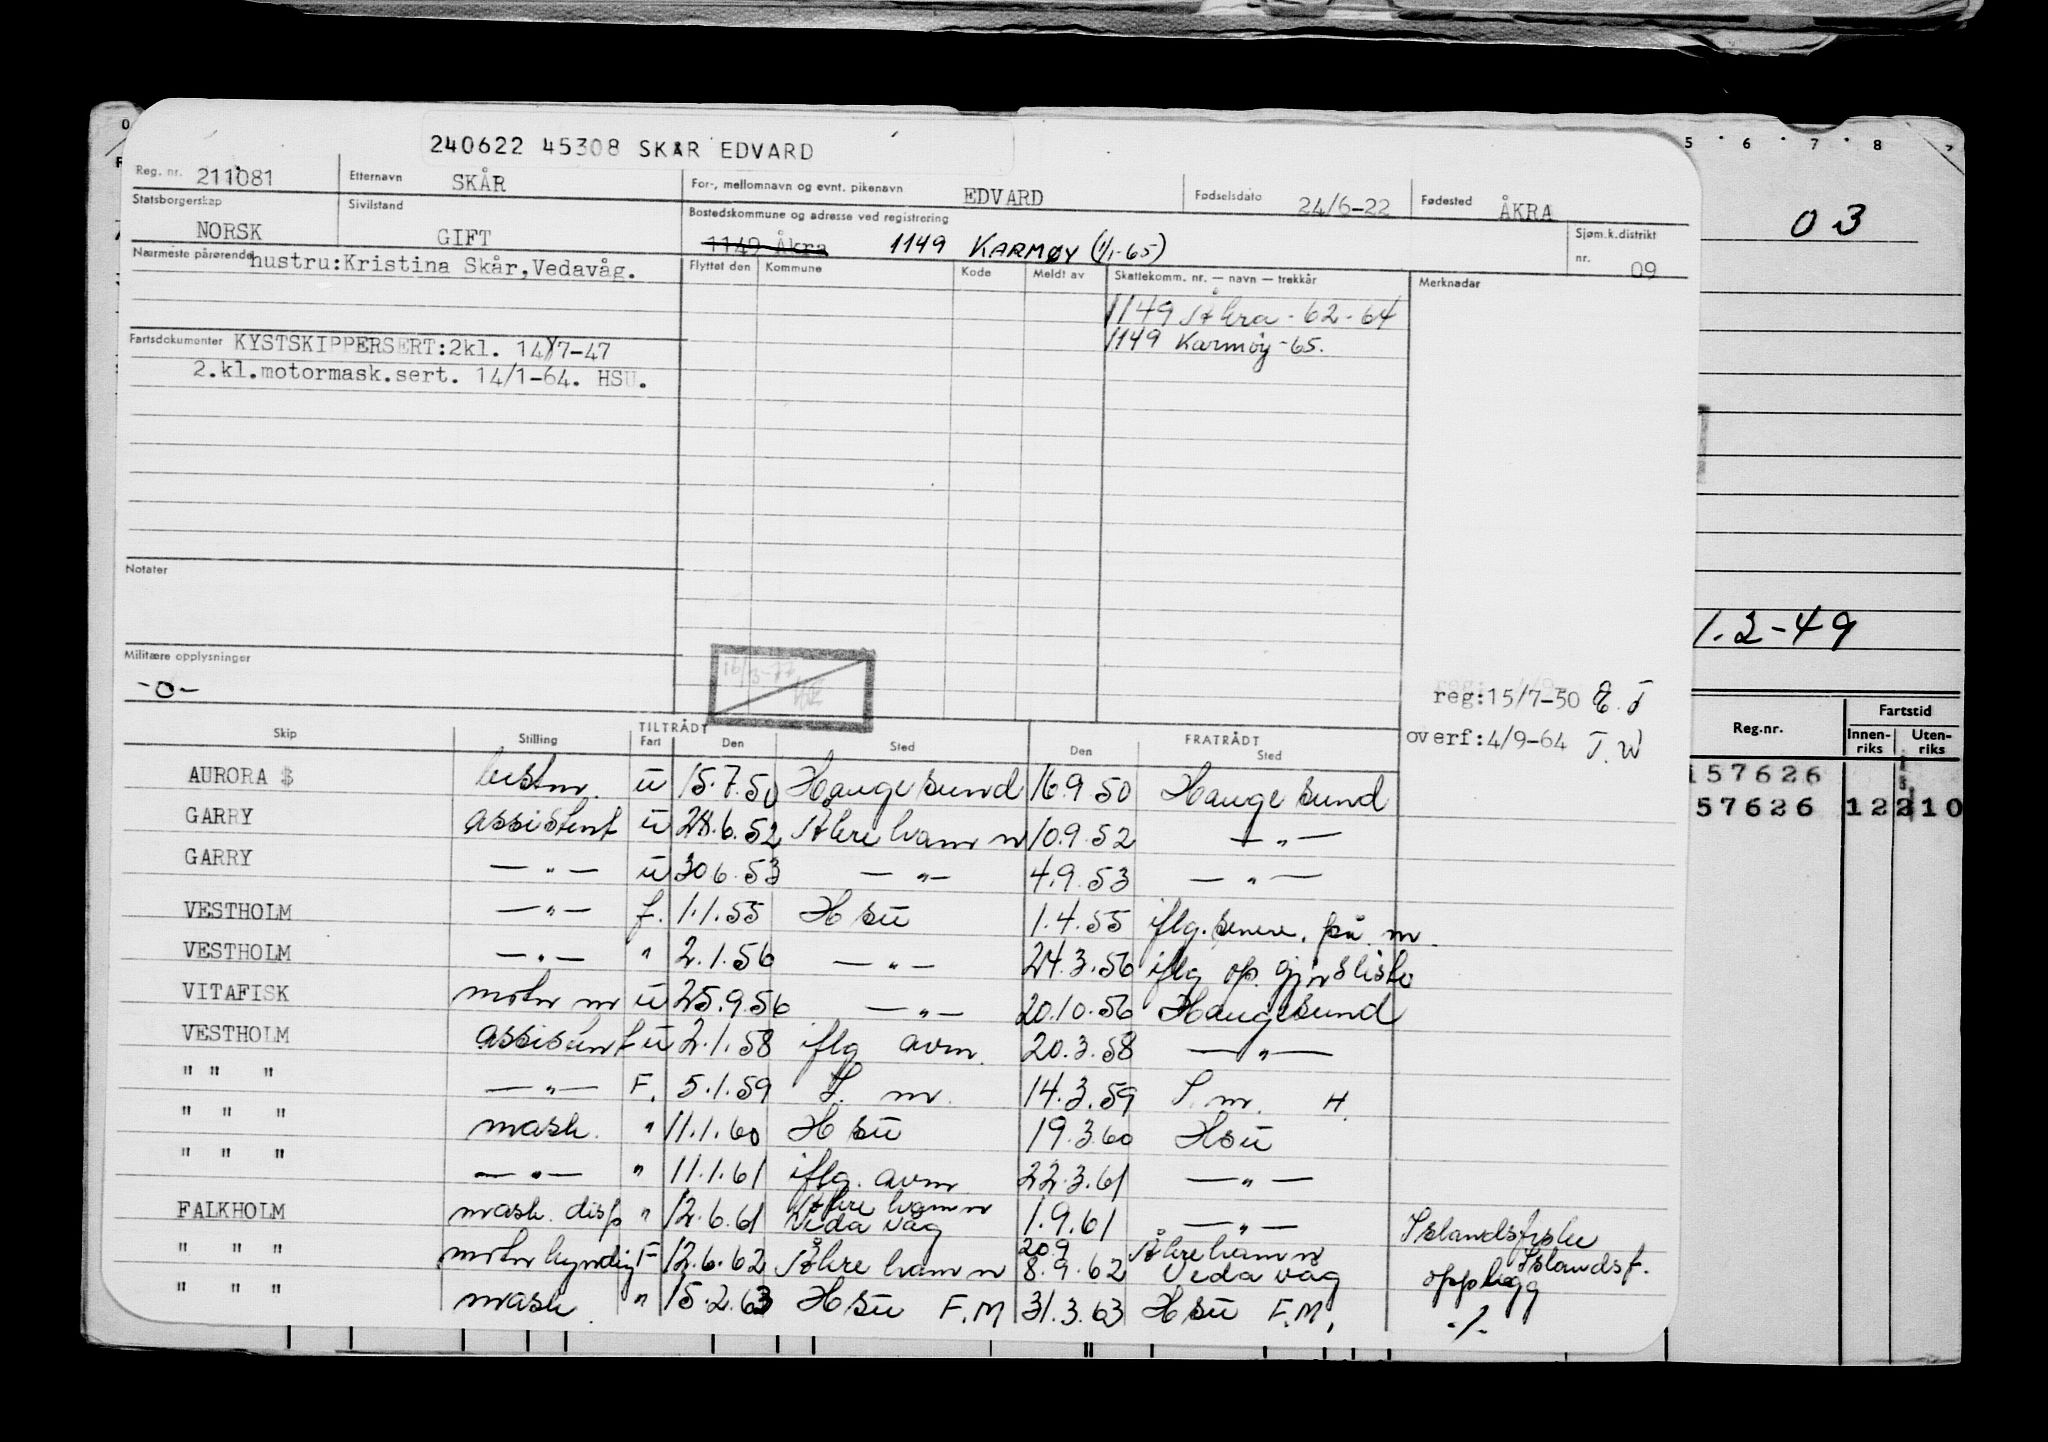 240622 45308 SKAR EDVARD
Reg. nr. 211081 Etternavn SKÅR For-, mellomnavn og evnt. pikenavn EDVARD Fødselsdato 24/6-22 Fødested ÅKRA
Statsborgerskap NORSK Sivilstand GIFT Bostedskommune og adresse ved registrering 1149 Åkra 1149 KARMØY (1/1-65) Sjøm.k.distrikt nr. 09
Nærmeste pårørende hustru:Kristina Skår,Vedavåg. Flyttet den Kommune Kode Meldt av Skattekomm. nr. — navn — trekkår Merknader
1149 Åkra - 62-64
1149 Karmøy -65.
Fartsdokumenter KYSTSKIPPERSERT:2kl. 14/7-47
2.kl.motormask.sert. 14/1-64. HSU.
Notater
Militære opplysninger
-0-
reg:15/7-50 E.T
overf:4/9-64 T.W
TILTRÅDT FRATRÅDT
Skip Stilling Fart Den Sted Den Sted
AURORA $ u 15.7.50 Haugesund 16.9.50 Haugesund
GARRY assistent u 28.6.52 Åkrehamn 10.9.52 — " —
GARRY — " — u 30.6.53 — " — 4.9.53 — " —
VESTHOLM — " — f. 1.1.55 Hsu 1.4.55 iflg. senere. på m.
VESTHOLM — " — " 2.1.56 — " — 24.3.56 iflg oppgjørsliste
VITAFISK motorm u 25.9.56 — " — 20.10.56 Haugesund
VESTHOLM assistent u 2.1.58 iflg avm. 20.3.58 — " —
" " " — " — F. 5.1.59 S. m. 14.3.59 S. m. H.
" " " mask. " 11.1.60 Hsu 19.3.60 Hsu
" " " — " — " 11.1.61 iflg. avm 22.3.61 — " —
FALKHOLM mask. disp " 12.6.61 Åkrehamn Vedavåg 1.9.61 — " — Islandsfiske
" " " motorkyndig F 12.6.62 Åkrehamn 20.9 8.9.62 Åkrehamn Vedavåg Islandsf. opplegg
" " " mask. " 15.2.63 Hsu F.M 31.3.63 Hsu F.M. -/-
5 6 7 8
03
1.2-49
Reg.nr. Fartstid
Innenriks Utenriks
157626
57626